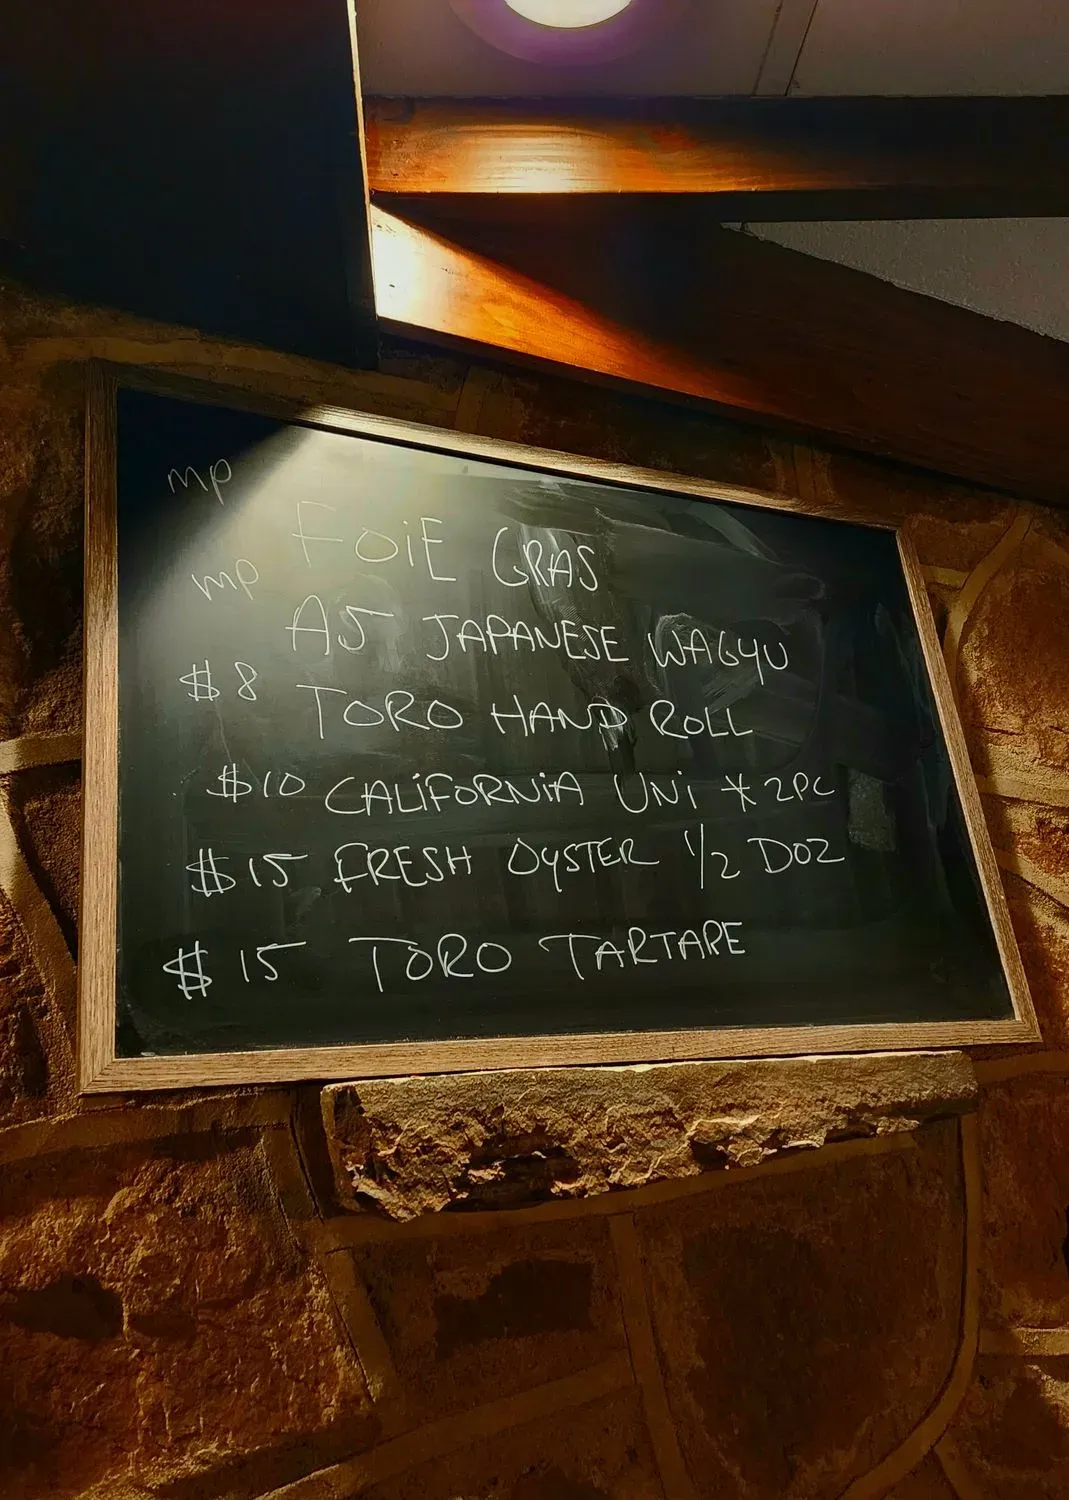 mp FOIE GRAS
mp A5 JAPANESE WAGYU
$8 TORO HAND ROLL
$10 CALIFORNIA UNI * 2PC
$15 FRESH OYSTER 1/2 DOZ
$15 TORO TARTARE